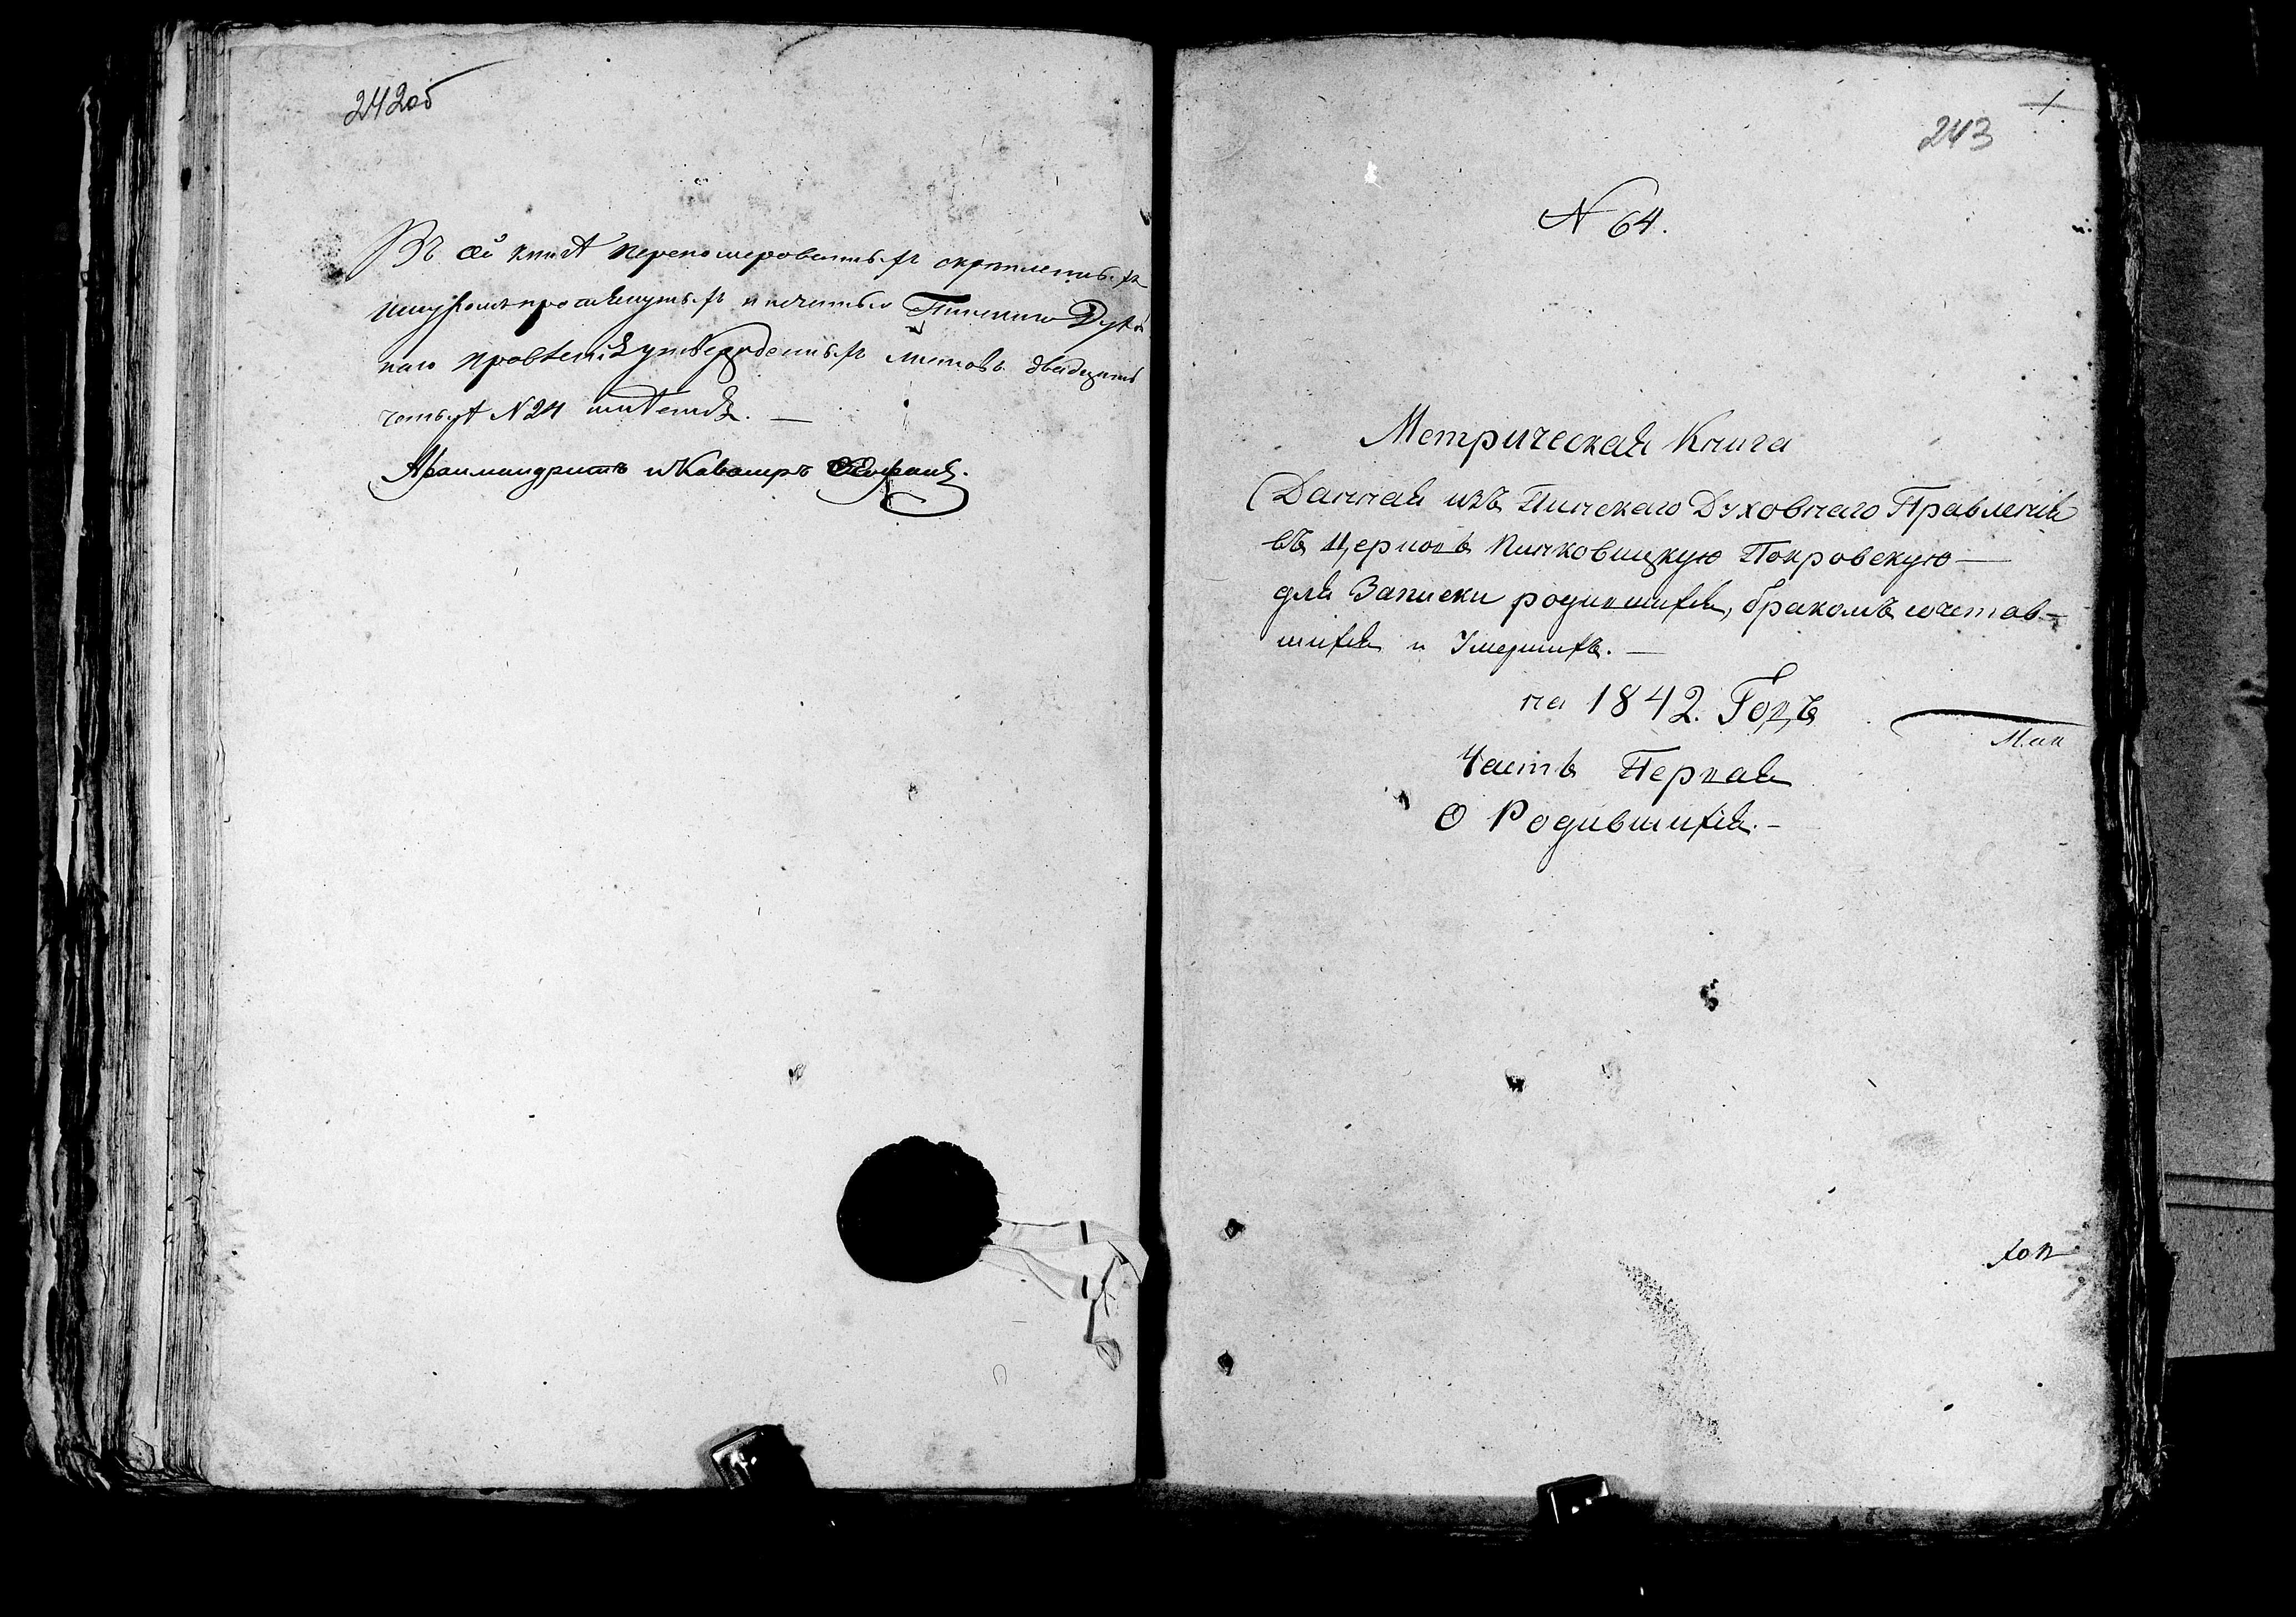 242 об
Въ сей книгѣ перенумерованныхъ скрепленныхъ
шнуромъ протянутыхъ и печатью Пинскаго Духов
наго правленія утвержденныхъ листовъ двадцать
четыре N 24
Архимандритъ и Кавалеръ
1
243
N 64.
Метрическая Книга
Данная изъ Пинскаго Духовнаго Правленія
въ Церковь Пинковицкую Покровскую —
для Записки родившихся, бракомъ сочетав-
шихся и Умершихъ. —
на 1842. Годъ
Часть Первая
О Родившихся. -